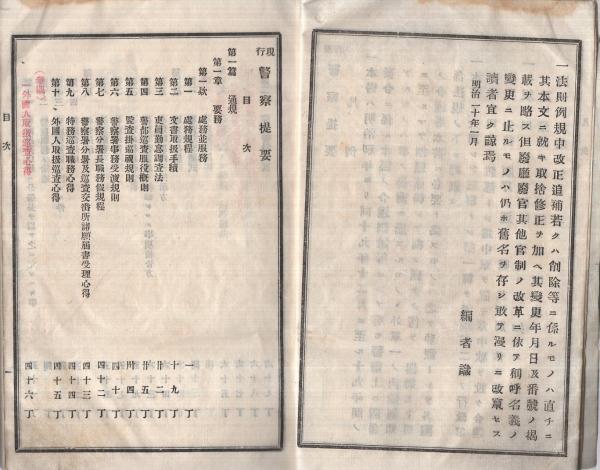 一法則例規中改正追補若クハ削除等ニ係ルモノハ直チニ
其本文ニ就キ取捨修正ヲ加ヘ其變更年月日及番號ノ揭
載ヲ略ス但廢廳廢官其他官制ノ改革ニ依テ稱呼名義ノ
變更ニ止ルモノハ仍ホ舊名ヲ存シ敢テ漫リニ改竄セス
讀者宜ク諒焉
明治二十年一月
編者識
現行 警察提要
目次
第一篇 通規
第一章 要務
第一欵 處務並服務
第一 處務規程 一丁
第二 文書取扱手續 十九丁
第三 吏員勤惰調査法 卅二丁
第四 警部巡査服役概則 卅五丁
第五 監査掛巡視規則 卅四丁
第六 警察署事務受渡規則 四十丁
第七 警察分署長職務假規程 四十二丁
第八 警察署分署及巡査交番所諸願屆書受理心得 四十三丁
第九 特務巡査職務心得 四十四丁
第十 外國人取扱巡査心得 四十五丁
外國人取扱巡査心得 四十六丁
目次
一